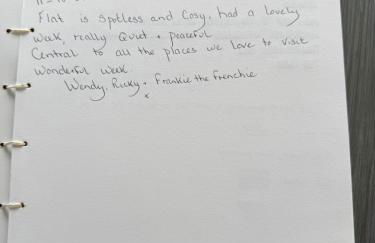 Flat is spotless and cosy, had a lovely
week, really Quiet + peaceful
Central to all the places we love to visit
Wonderful week.
Wendy, Ricky + Frankie the Frenchie
x